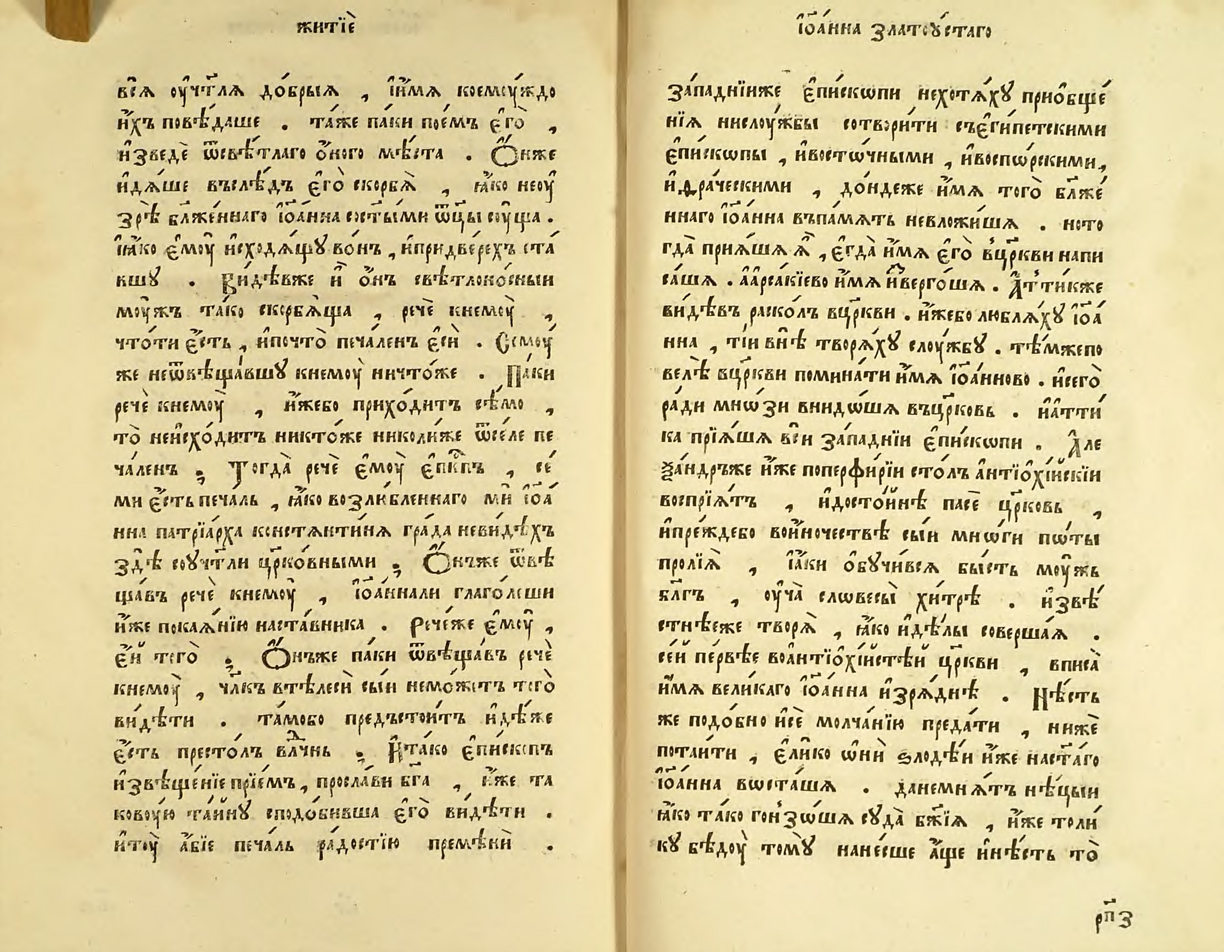 житїѐ
всѧ̀ ᲂу҆чт҃лѧ до́брыѧ , і҆и҆мѧ коемꙋ́ждо
и҆́хъ повѣ́даше . та́же паки пое́мъ є҆го̀ ,
и҆зведѐ ѿсвѣ́тлаго о҆́ного мѣ́ста . О҆́нже
и҆дѧ́ше въслѣ́дъ є҆го̀ скорбѧ̀ , ꙗ҆́ко неоу҆
зрѣ̀ бл҃же́ннаго і҆ѡа́нна сст҃ы́ми ѿц҃ы̀ соу́ща .
і҆ꙗ҆́ко є҆моу̀ и҆сходѧ́щꙋ во́нъ , и҆придве́рехъ ста́
вшꙋ . Ви́дѣвже и҆̀ о҆́нъ свѣтлоно́сныи
моу́жъ та́ко скорбѧ́ща , речѐ кнемоу̀ ,
что́ти є҆́сть , и҆почто̀ печа́ленъ є҆сѝ . Семоу́
же неѿвѣща́вшꙋ кнемоу̀ ничто́же . Па́ки
речѐ кнемоу̀ , и҆́жебо прихо́дитъ сѣ́мо ,
то̀ неи҆схо́дитъ никто́же николи́же ѿсе́ле пе
ча́ленъ ; Тогда̀ речѐ є҆моу̀ є҆пп҃ъ , се́
ми є҆́сть печа́ль , ꙗ҆́ко возлю́бленнаго мѝ і҆ѡа́
нна патрїа́рха констѧнти́нѧ гра́да неви́дѣхъ
здѣ̀ соучт҃ли цр҃ко́вными ; О҆́нъже ѿвѣ
ща́въ речѐ кнемоу̀ , і҆ѡа́ннали глаго́леши
и҆́же покаѧ́нїю наста́вника . Рече́же є҆моу̀ ,
є҆́и того̀ ; О҆́нъже паки ѿвѣща́въ речѐ
кнемоу̀ , чл҃къ втѣлесѝ сы́и немо́жетъ того̀
ви́дѣти . та́мобо предъстои́тъ и҆дѣ́же
є҆́сть престо́лъ влⷣчнь ; И҆та́ко є҆пи́скопъ
и҆звѣще́нїе прїе́мъ , просла́ви бг҃а , и҆́же та
ковоу́ю та́инꙋ сподо́бивша є҆го̀ ви́дѣти .
и҆тоу̀ а҆́бїе печа́ль ра́достїю премѣнѝ .
і҆ѡа́нна златоу́стаго
За́паднїиже є҆пи́скопи нехотѧ́хꙋ прио́бще́
нїѧ нислоу́жбы сотвори́ти съє҆ги́петскими
є҆пи́скопы , и҆восто́чными , и҆воспо́рскими ,
и҆ѳра́ческими , до́ндеже и҆́мѧ того̀ бл҃же́
ннаго і҆ѡа́нна въпа́мѧть невложи́шѧ . ното
гда̀ приѧ́шѧ ѧ҆̀ , є҆гда̀ и҆́мѧ є҆го̀ вцр҃кви напи
са́шѧ . аарса́кїево и҆́мѧ и҆зверго́шѧ . А҆тти́кже
ви́дѣвъ раско́лъ вцр҃кви . и҆́жебо люблѧ́хꙋ і҆ѡа́
нна , ті́и внѣ̀ творѧ́хꙋ слоу́жбꙋ . тѣ́мжепо
велѣ̀ вцр҃кви помина́ти и҆́мѧ і҆ѡа́нново . и҆сего̀
ра́ди мно́зи внидо́шѧ въцр҃ковь . и҆а҆тти́
ка прїѧ́шѧ всѝ за́паднїи є҆пи́скопи . А҆ле
ѯа́ндръже и҆́же попорфи́рїи сто́лъ а҆нтїо́хїискїи
воспрїѧ́тъ , и҆досто́йнѣ пасѐ цр҃ковь ,
и҆пре́ждебо во́иночествѣ сы́и мно́ги по́ты
пролїѧ̀ , і҆а́ки о҆бꙋчи́всѧ бы́сть моу́жь
бл҃гъ , ᲂу҆ча̀ словесы̀ хи́трѣ . и҆звѣ́
стнѣеже творѧ̀ , ꙗ҆́ко и҆дѣ́лы соверша́ѧ .
се́и пе́рвѣе воа҆нтїохі́истѣи цр҃кви , вписа̀
и҆́мѧ вели́каго і҆ѡа́нна и҆зрѧ́днѣ . Нѣ́сть
же подо́бно и҆сѐ молча́нїю преда́ти , ниже́
потаи́ти , є҆ли́ко ѡ҆нѝ ѕлодѣ́и и҆́же наст҃а́го
і҆ѡа́нна воста́шѧ . да́немнѧтъ нѣ́цыи
ꙗ҆́ко та́ко гонзо́шѧ сꙋда̀ бж҃їѧ , и҆́же толи́
кꙋ бѣ́доу томꙋ̀ нане́сше а҆́ще и҆нѣ́сть то̀
рп҃з